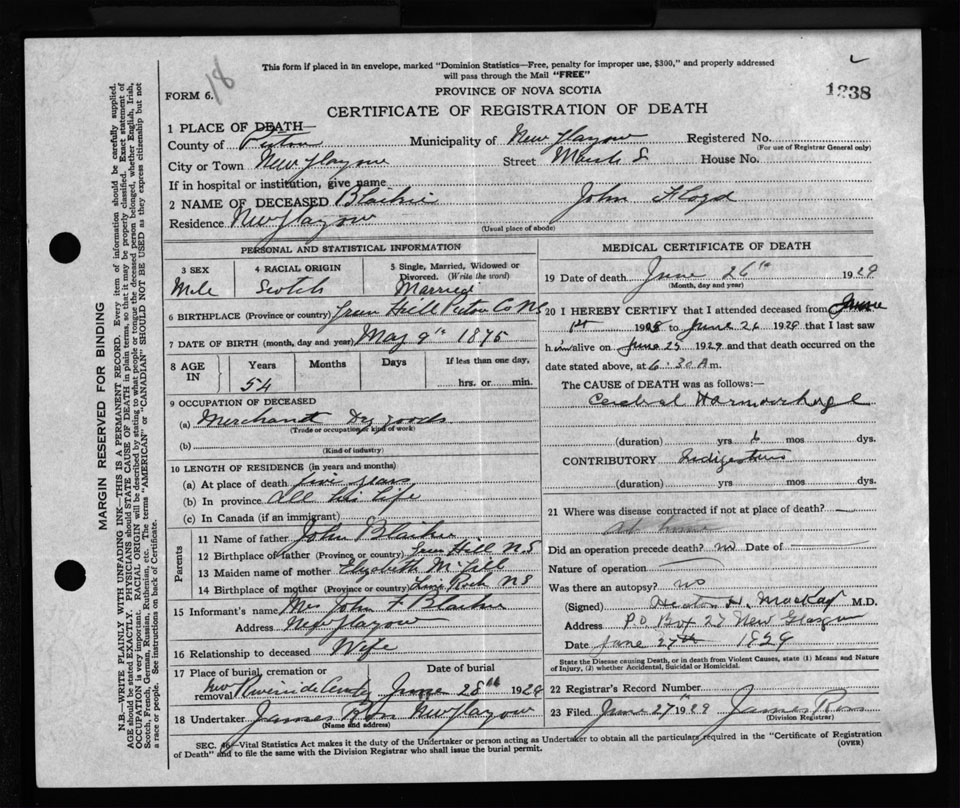 18
This form if placed in an envelope, marked "Dominion Statistics—Free, penalty for improper use, $300," and properly addressed
will pass through the Mail "FREE"
FORM 6.
PROVINCE OF NOVA SCOTIA
1238
CERTIFICATE OF REGISTRATION OF DEATH
1 PLACE OF DEATH
County of Pictou Municipality of New Glasgow Registered No.
(For use of Registrar General only)
City or Town New Glasgow Street Marsh S. House No.
If in hospital or institution, give name
2 NAME OF DECEASED Blaikie John Floyd
Residence New Glasgow
(Usual place of abode)
PERSONAL AND STATISTICAL INFORMATION
3 SEX 4 RACIAL ORIGIN 5 Single, Married, Widowed or
Divorced. (Write the word)
Male Scotch Married
6 BIRTHPLACE (Province or country) Green Hill Pictou Co NS
7 DATE OF BIRTH (month, day and year) May 9th 1875
8 AGE IN Years Months Days If less than one day,
54 hrs. or min.
9 OCCUPATION OF DECEASED
(a) Merchant Dry goods
(Trade or occupation or kind of work)
(b)
(Kind of industry)
10 LENGTH OF RESIDENCE (in years and months)
(a) At place of death five years
(b) In province All his life
(c) In Canada (if an immigrant)
Parents
11 Name of father John Blaikie
12 Birthplace of father (Province or country) Green Hill N S
13 Maiden name of mother Elizabeth McGill
14 Birthplace of mother (Province or country) Lime Rock N S
15 Informant's name Mrs John F Blaikie
Address New Glasgow
16 Relationship to deceased Wife
17 Place of burial, cremation or Date of burial
removal Riverside Cemetery June 28th 1929
18 Undertaker James Ross New Glasgow
(Name and address)
MEDICAL CERTIFICATE OF DEATH
19 Date of death June 26th 1929
(Month, day and year)
20 I HEREBY CERTIFY that I attended deceased from June
1st 1928 to June 26 1929 that I last saw
him alive on June 25 1929 and that death occurred on the
date stated above, at 6:30 A m.
The CAUSE of DEATH was as follows:—
Cerebral Haemorrhage
(duration) yrs 6 mos dys.
CONTRIBUTORY Indigestion
(duration) yrs mos dys.
21 Where was disease contracted if not at place of death?
At home
Did an operation precede death? no Date of
Nature of operation
Was there an autopsy? no
(Signed) H. Mackay M.D.
Address P.O Box 27 New Glasgow
Date June 27th 1929
State the Disease causing Death, or in death from Violent Causes, state (1) Means and Nature
of Injury, (2) whether Accidental, Suicidal or Homicidal.
22 Registrar's Record Number
23 Filed June 27 1929 James Ross
(Division Registrar)
SEC. 46—Vital Statistics Act makes it the duty of the Undertaker or person acting as Undertaker to obtain all the particulars required in the "Certificate of Registration
of Death" and to file the same with the Division Registrar who shall issue the burial permit.
(OVER)
MARGIN RESERVED FOR BINDING
N.B.—WRITE PLAINLY WITH UNFADING INK—THIS IS A PERMANENT RECORD. Every item of information should be carefully supplied.
AGE should be stated EXACTLY. PHYSICIANS should STATE CAUSE OF DEATH in plain terms, so that it may be properly classified. Exact statement of
OCCUPATION is very important. RACIAL ORIGIN will be described by stating to what people or tongue the deceased person belonged, whether English, Irish,
Scotch, French, German, Russian, Ruthenian, etc. The terms "AMERICAN" or "CANADIAN" SHOULD NOT BE USED as they express citizenship but not
a race or people. See instructions on back of Certificate.